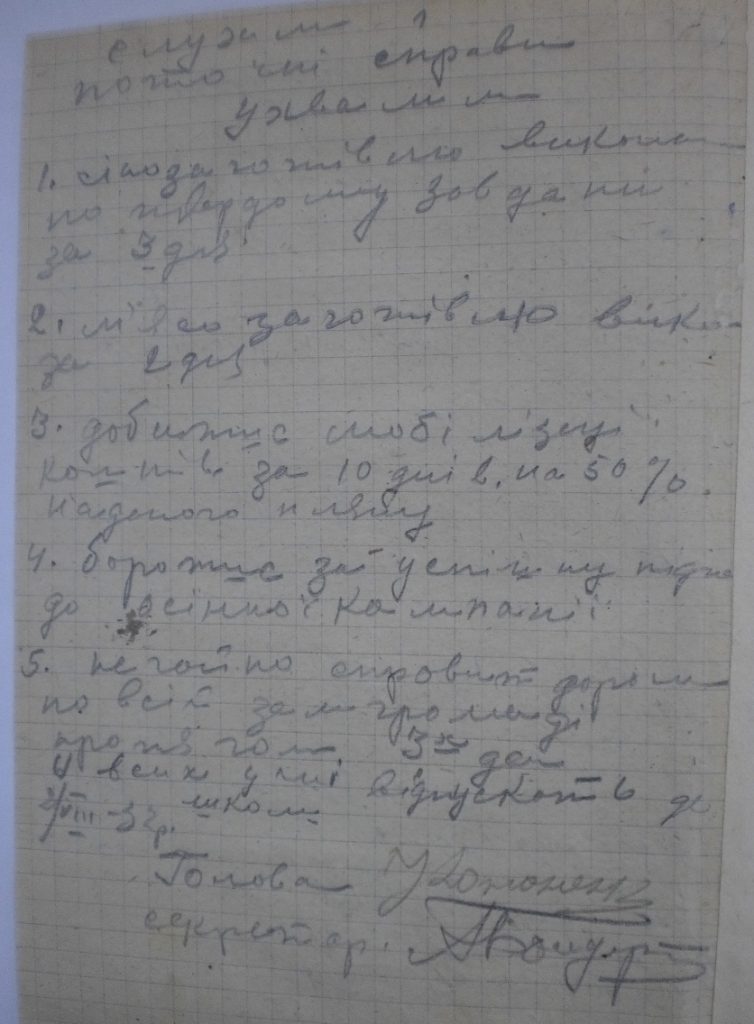 слухали
поточні справи
ухвалили
1. сінозаготівлю викона
по твердому завдані
за 3 дні
2. м'ясозаготівлю вико
за 2 дні.
3. добитис мобілізаці
коштів за 10 днів, на 50%.
наданого пляну
4. боротис за успішну підго
до осінної кампанії
5. негайно справит дороги
по всій земгромаді
протягом 3х ден
всих учні відпускать до
школи
VIII-32р.
Голова
секретар.